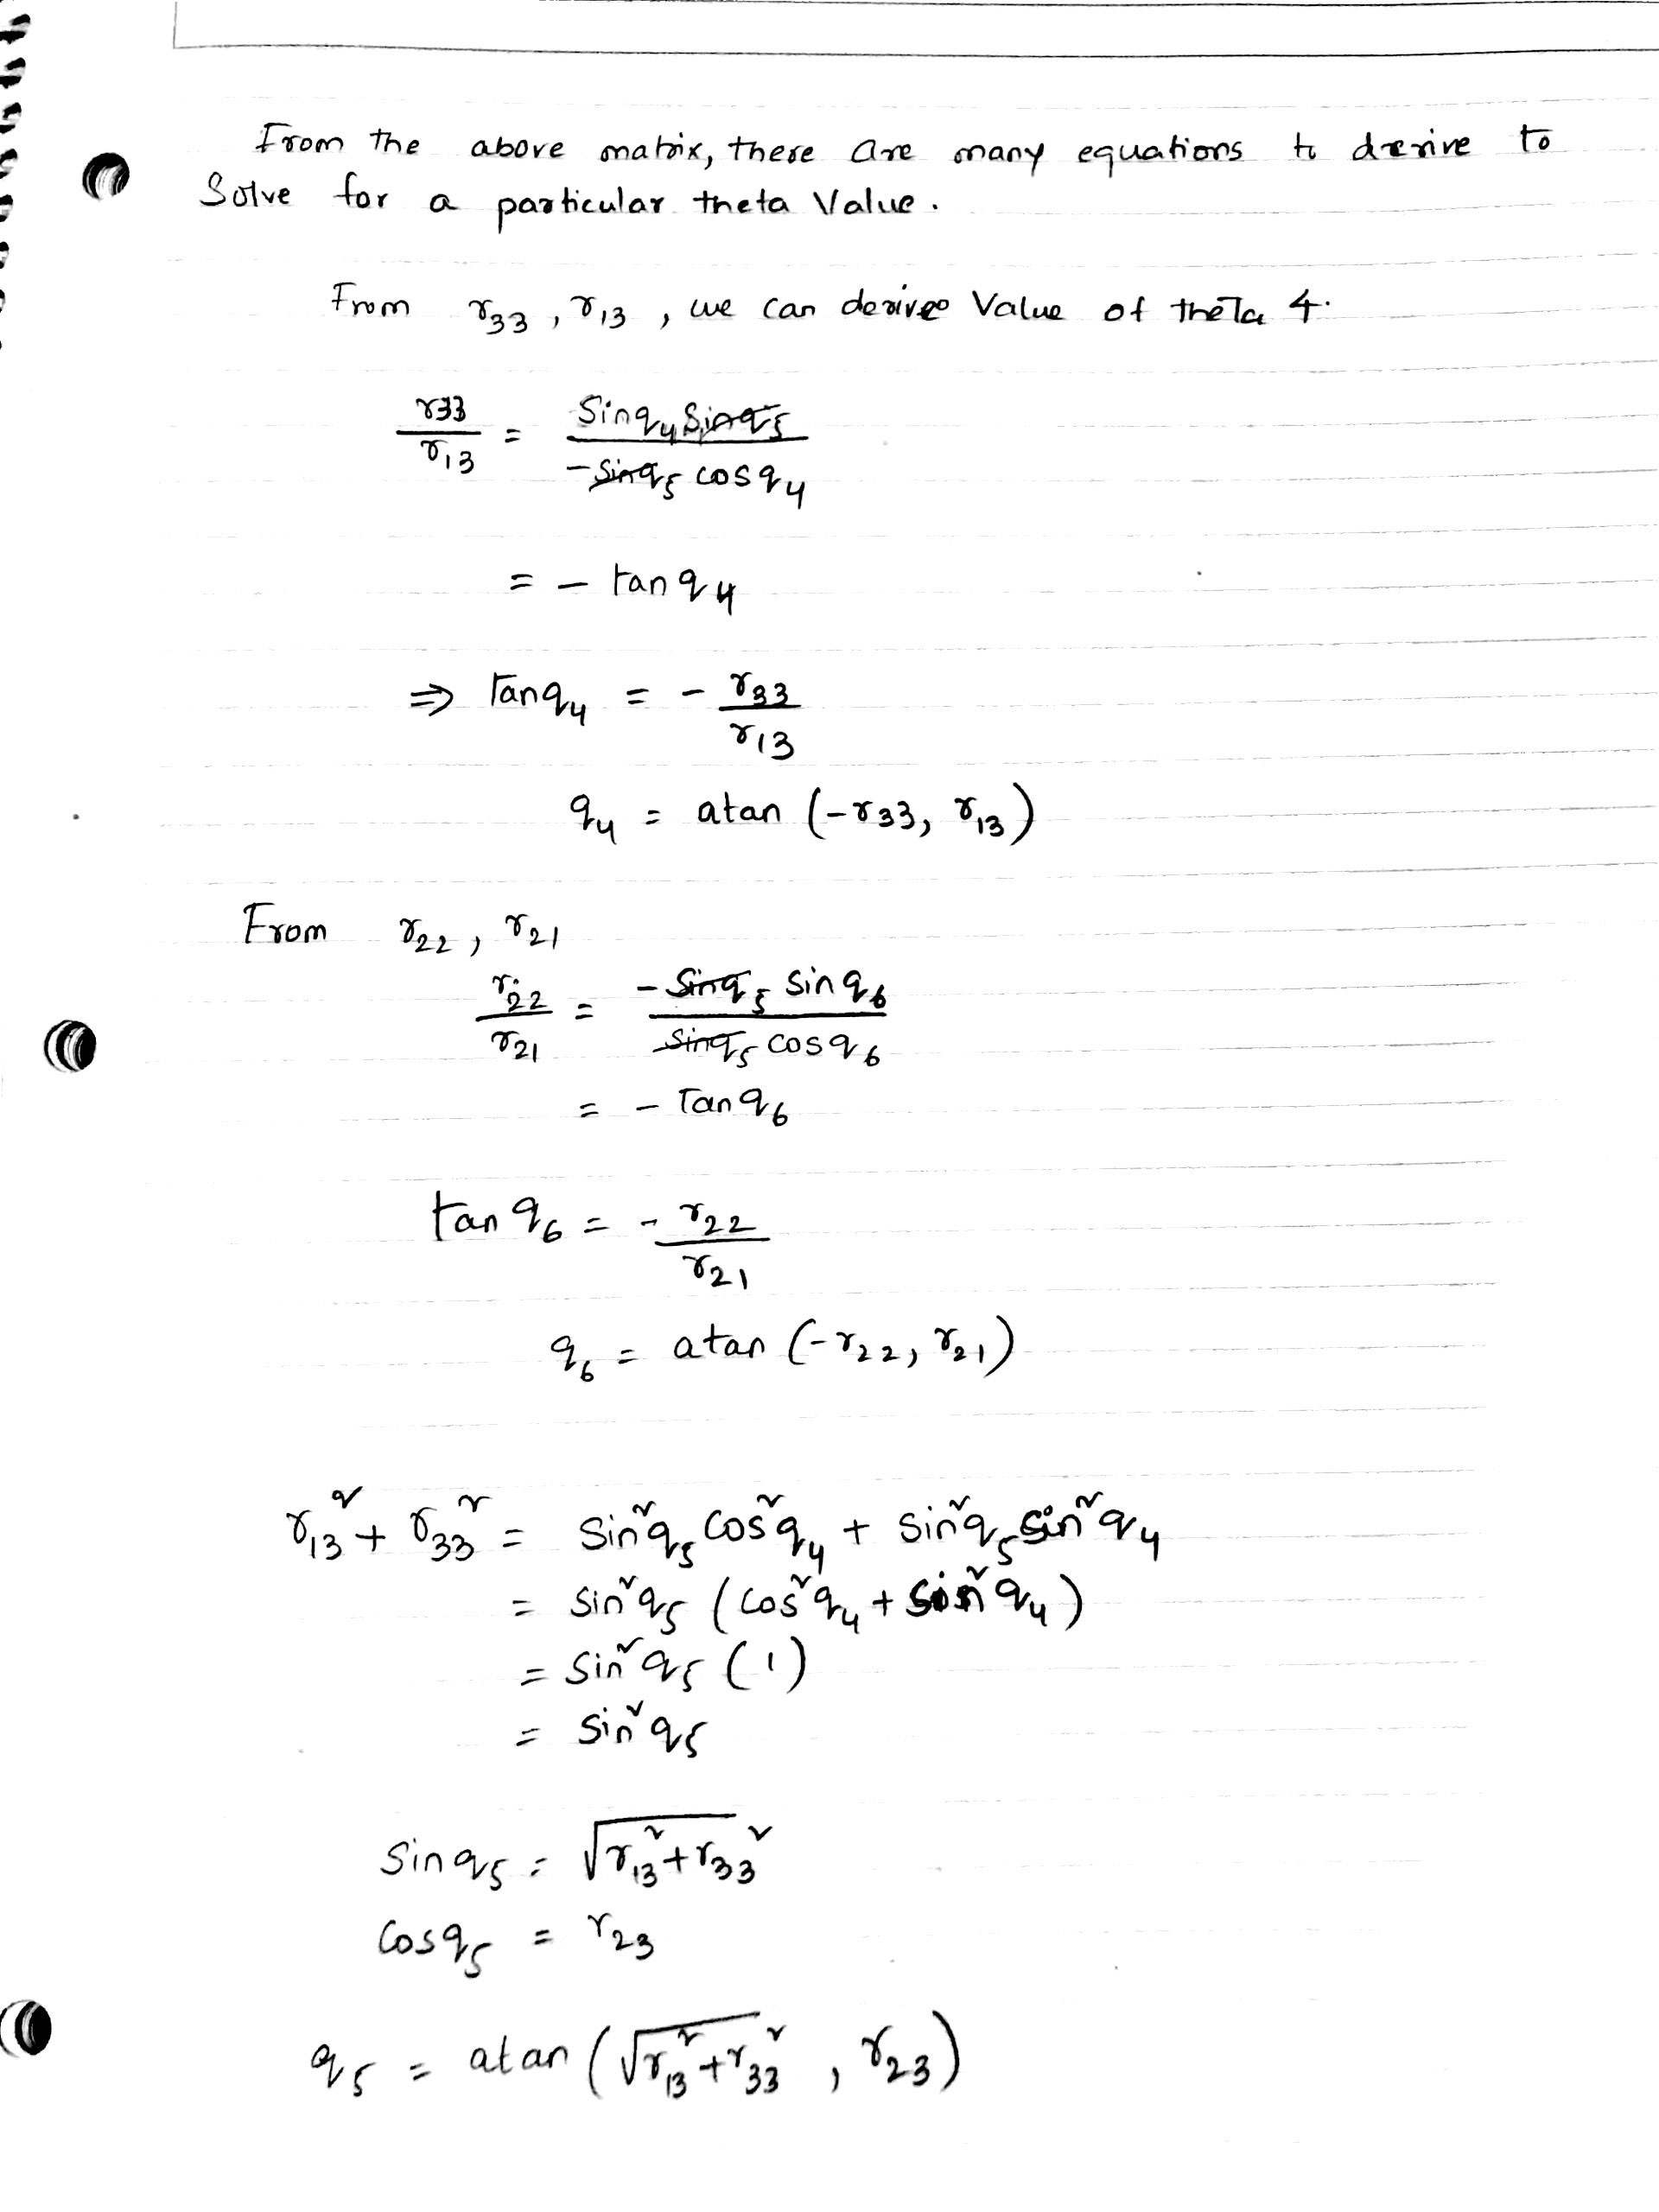 From the above matrix, there are many equations to derive to
Solve for a particular theta Value.
From r33, r13, we can derive Value of theta 4.
r33/r13 = Sinq4 Sinq5 / -Sinq5 cosq4
= - tan q4
⇒ Tanq4 = - r33/r13
q4 = atan (-r33, r13)
From r22, r21
r22/r21 = - Sinq5 Sin q6 / Sinq5 cosq6
= - Tan q6
tan q6 = - r22/r21
q6 = atan (-r22, r21)
r13² + r33² = Sin²q5 Cos²q4 + Sin²q5 Sin²q4
= Sin²q5 (Cos²q4 + Sin²q4)
= Sin²q5 (1)
= Sin²q5
Sinq5 = √r13²+r33²
Cosq5 = r23
q5 = atan (√r13²+r33² , r23)